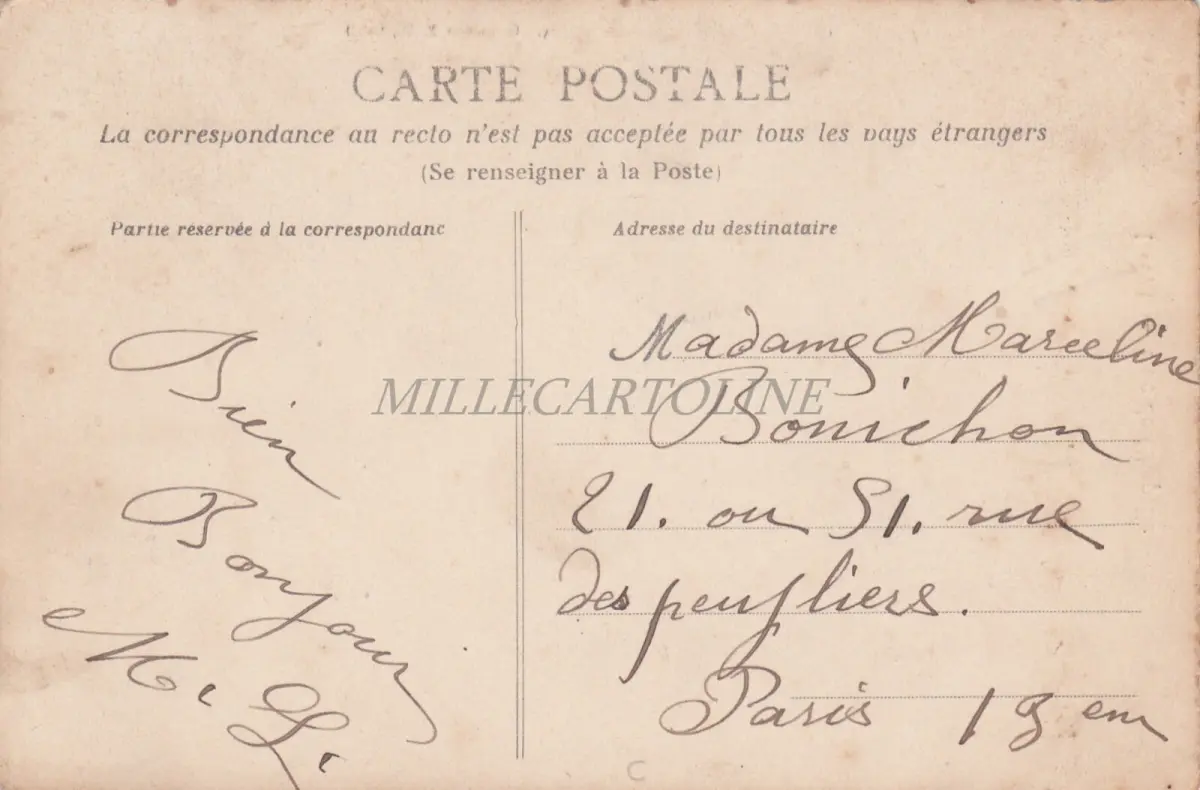 CARTE POSTALE
La correspondance au recto n'est pas acceptée par tous les pays étrangers
(Se renseigner à la Poste)
Partie réservée à la correspondanc
Adresse du destinataire
Bien
Bonjour
M. L.
Madame Marceline
Bonichon
21. ou 51. rue
des peupliers.
Paris 13 em
MILLECARTOLINE
C